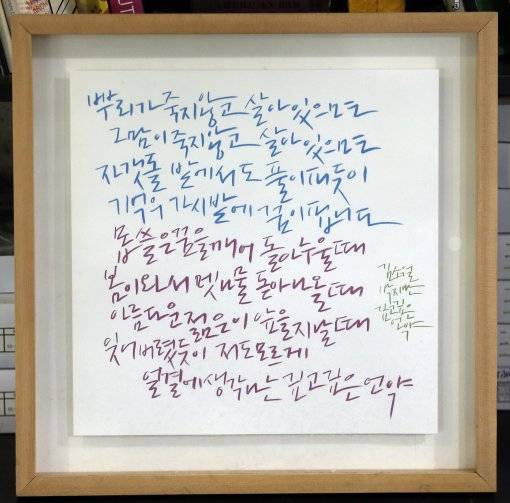 뿌리가 죽지않고 살아있으므로
그맘이 죽지않고 살아있으므로
자갯돌 밭에서도 풀이피듯이
기억의 가시밭에 꿈이핍니다
몹쓸은꿈을깨여 돌아누울때
봄이와서 멧나물 돋아나올때
아름다운 젊은이 앞을지날때
잊어버렸듯이 저도모르게
얼결에생각나는 깊고깊은 언약
김소월
깊고깊은
언약